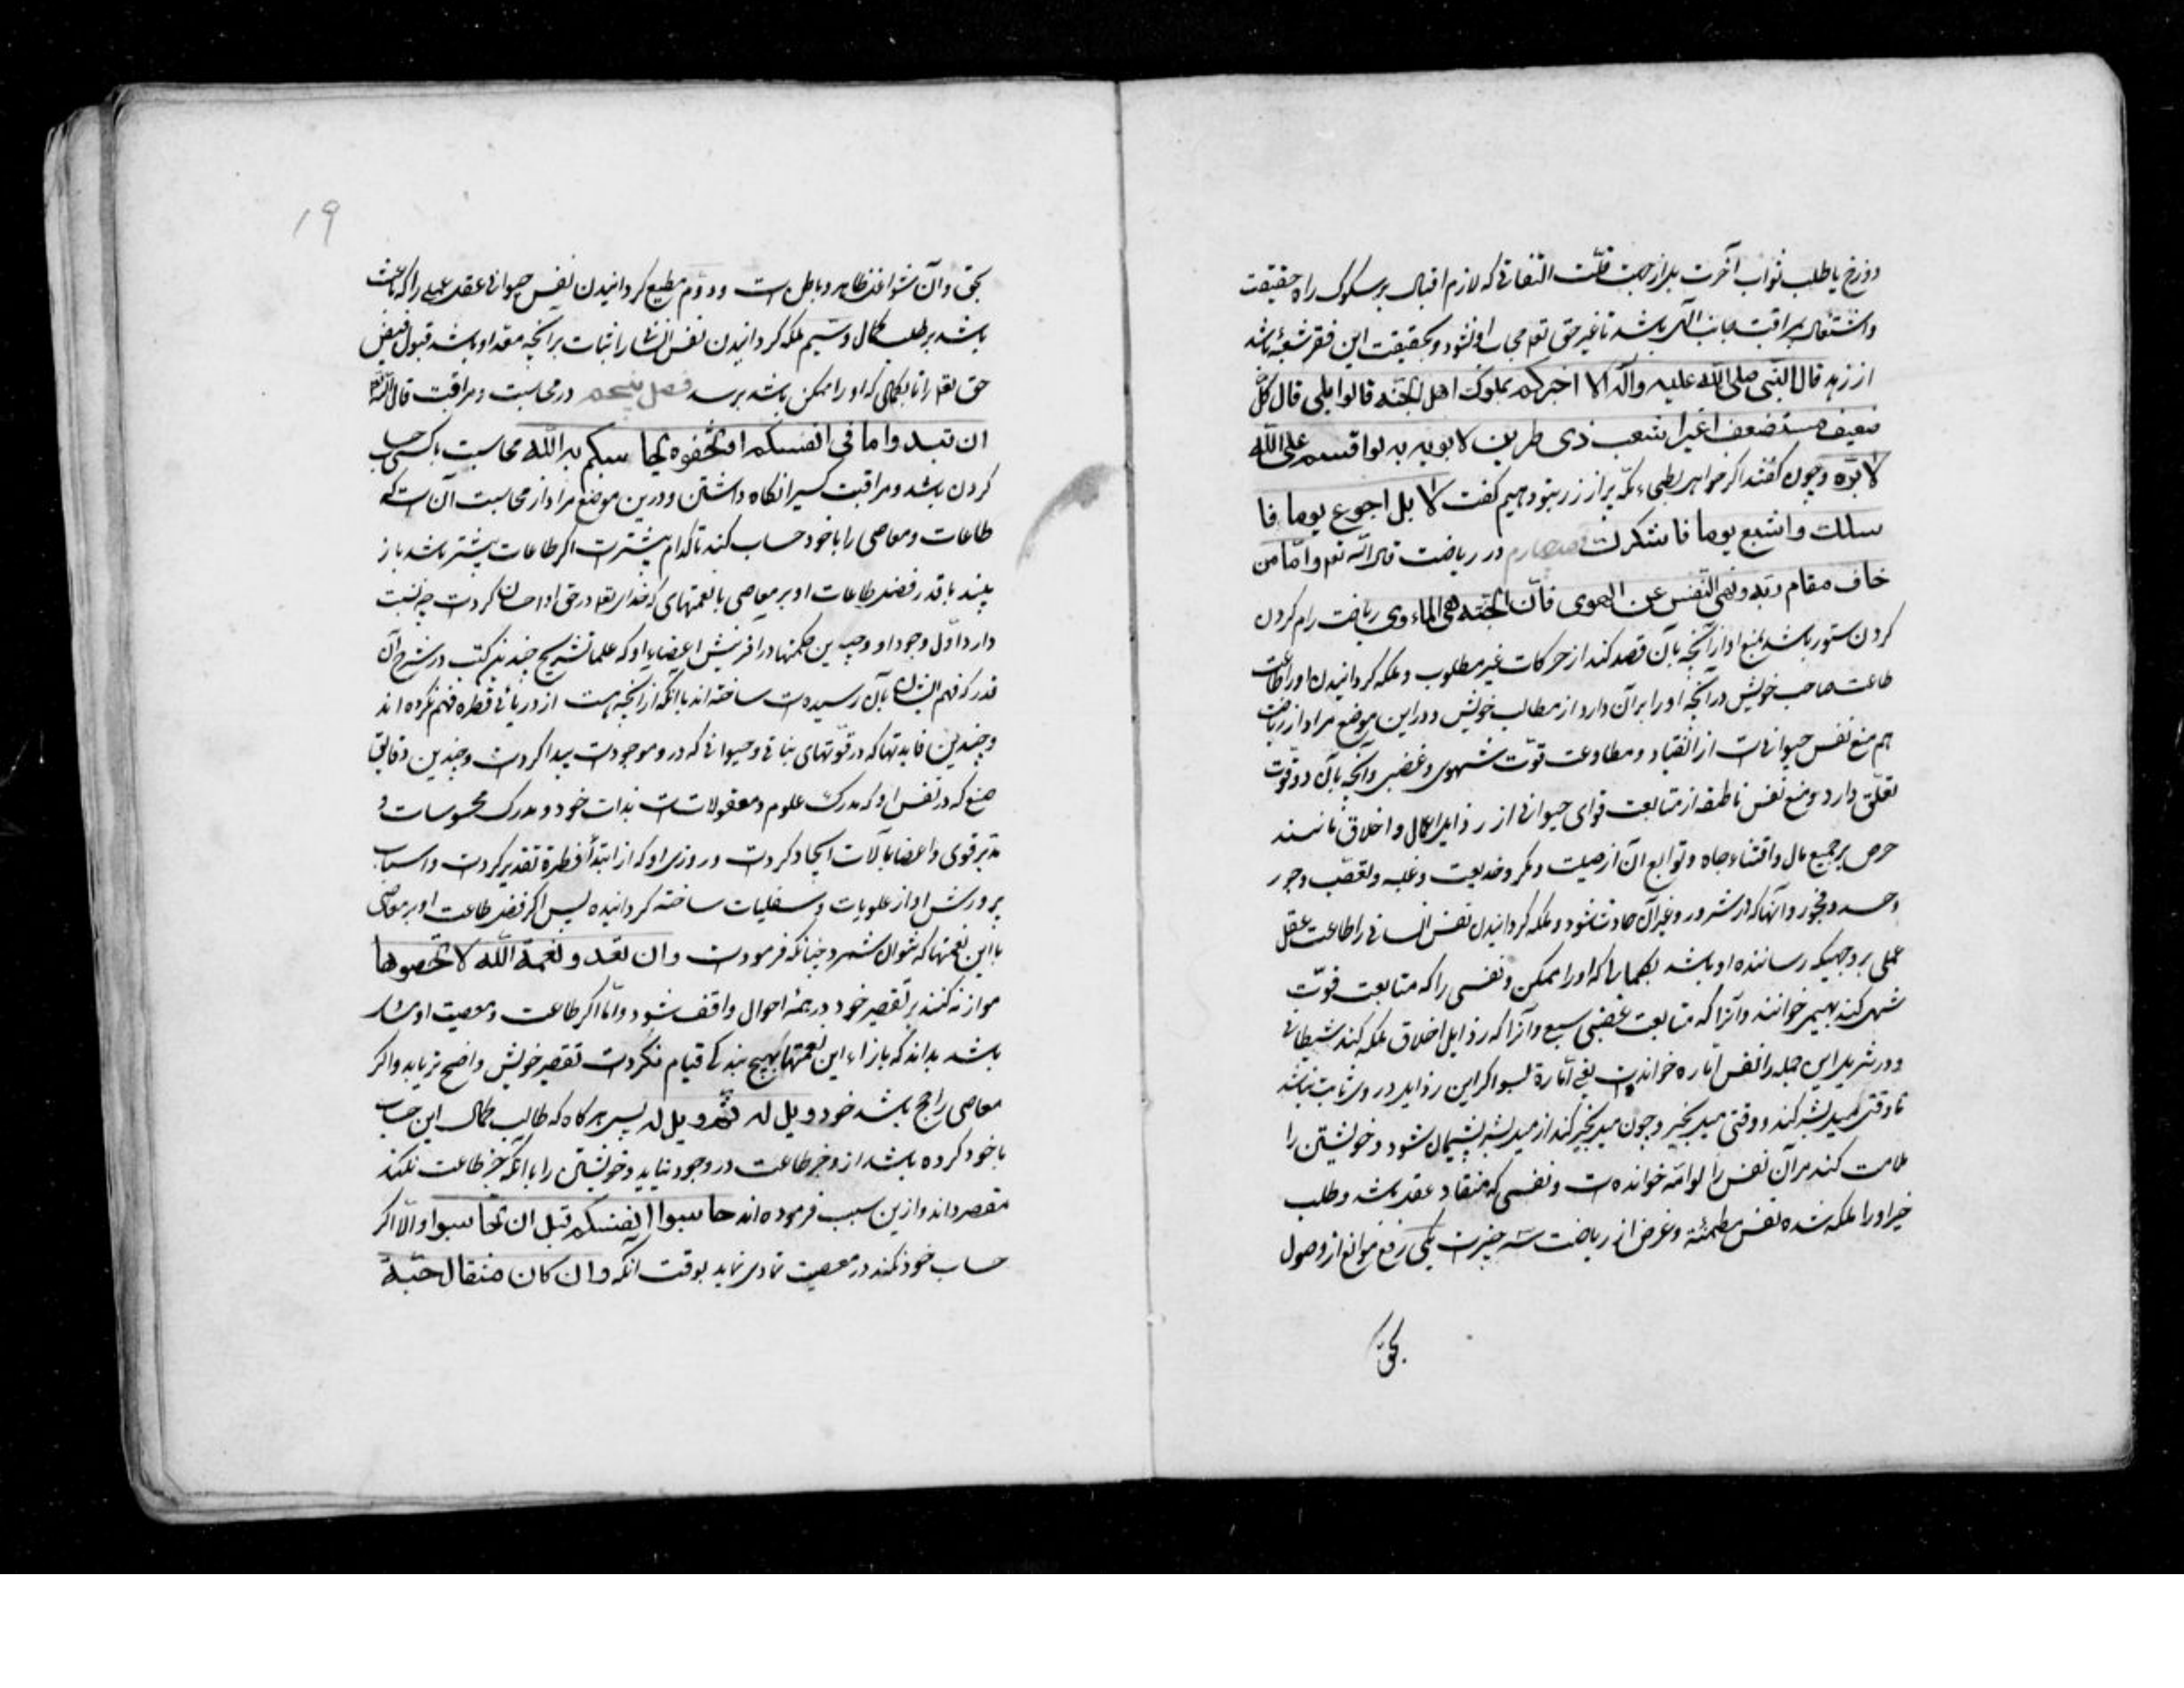 دوزخ یا طلب ثواب آخرت بل از جهت قلّت التفاتی که لازم اقبال بر سلوک راه حقیقت
و اشتغال بمراقبت جانب الهی باشد تا غیر حق تعم حجاب او نشود و بحقیقت این فقر شعبهٔ باشد
از زهد قال النبی صلی الله علیه وآله الا اخبرکم بملوک اهل الجنه قالوا بلی قال کلّ
ضعیف مستضعف اغبر اشعث ذی طمرین لا یوبه به لو اقسم علی الله
لابرّه و چون گفتند اگر خواهی بطحاء مکه پر از زر بتو دهیم گفت لا بل اجوع یوما فا
سئلک و اشبع یوما فاشکرک فصل چهارم در ریاضت قال الله تعم و امّا من
خاف مقام ربه و نهی النفس عن الهوی فانّ الجنه هی الماءوی ریاضت رام کردن
کردن ستور باشد بمنع او از آنچه بآن قصد کند از حرکات غیر مطلوب و ملکه گردانیدن او را طاعت
طاعت صاحب خویش در آنچه او را بر آن دارد از مطالب خویش و در این موضع مراد از ریاضت
هم منع نفس حیوانیست از انقیاد و مطاوعت قوّت شهوی و غضبی و آنچه بآن دو قوت
تعلّق دارد و منع نفس ناطقه از متابعت قوای حیوانی از رذایل اعمال و اخلاق مانند
حرص بر جمیع مال و اقتناء جاه و توابع آن از حیلت و مکر و خدیعت و غلبه و تعصّب و جور
و حسد و فجور و آنها که از شرور و غیر آن حادث شود و ملکه گردانیدن نفس انسانی را طاعت عقل
عملی بر وجهیکه رساننده او باشد بکمالی که او را ممکن و نفسی را که متابعت قوّت
شهوی کند بهیمی خوانند و آنرا که متابعت غضبی سبعی و آنرا که رذایل اخلاق ملکه کند شیطانی
و در تنزیل این جمله را نفس اماره خواندست یعنی امّارة بالسوء اگر این رذایل در وی ثابت باشد
تا وقتی میل بشر کند و وقتی میل بخیر و چون میل بخیر کند از میل بشر پشیمان شود و خویشتن را
ملامت کند مر آن نفس را لوامه خوانده است و نفسی که منقاد عقل باشد و طلب
خیر او را ملکه شده نفس مطمئنه و غرض از ریاضت سه چیزست یکی رفع موانع از وصول
بحقّ
۱۹
بحق و آن شواغل ظاهر و باطن است و دوّم مطیع گردانیدن نفس حیوانی عقل عملی را که باعث
باشد بر طلب کمال و سیّم ملکه گردانیدن نفس انسانی را ثبات بر آنچه معدّ او باشد قبول فیض
حق تعم را تا بکمالی که او را ممکن باشد برسد فصل پنجم در محاسبت و مراقبت قال الله تعم
ان تبدوا ما فی انفسکم او تخفوه یحاسبکم به الله محاسبت با کسی حساب
کردن باشد و مراقبت کسی را نگاه داشتن و درین موضع مراد از محاسبت آن است که
طاعات و معاصی را با خود حساب کند تا کدام بیشترست اگر طاعات بیشتر باشد باز
بیند با قدر فضل طاعات او بر معاصی با نعمتهای که خدای تعم در حق او احسان کردست چه نسبت
دارد اوّل وجود او و چندین حکمتها در آفرینش اعضای او که علما تشریح چندین کتب در شرح آن
قدر که فهم ایشان بآن رسیدست ساخته اند با آنکه از آنچه هست از دریائی قطره فهم نکرده اند
و چندین فایدتها که در قوّتهای نباتی و حیوانی که در و موجودست پیدا کردست و چندین دقایق
صنع که در نفس او که مدرک علوم و معقولاتست بذات خود و مدرک محسوسات و
مدبر قوی و اعضا بآلات ایجاد کردست و روزی او که از ابتدأ فطرة تقدیر کردست و اسباب
پرورش او از علویات و سفلیات ساخته گردانیده پس اگر فضل طاعت او بر معاصی
با این نعمتها که نتوان شمرد چنانکه فرمودست و ان تعدو نعمة الله لا تحصوها
موازنه کنند بر تقصیر خود در همهٔ احوال واقف شود و امّا اگر طاعت و معصیت او مساوی
باشد بداند که بازاء این نعمتها بهیچ بندگی قیام نکردست تقصیر خویش واضح تر یابد و اگر
معاصی راجح باشد خود ویل له ثم ویل له پس هر گاه که طالب کمال این حساب
با خود کرده باشد از و جز طاعت در وجود نیاید و خویشتن را با آنکه جز طاعت نکند
مقصر داند و ازین سبب فرموده اند حاسبوا انفسکم قبل ان تحاسبوا و الّا اگر
حساب خود نکند در معصیت تمادی نماید بوقت آنکه و ان کان مثقال حبّة